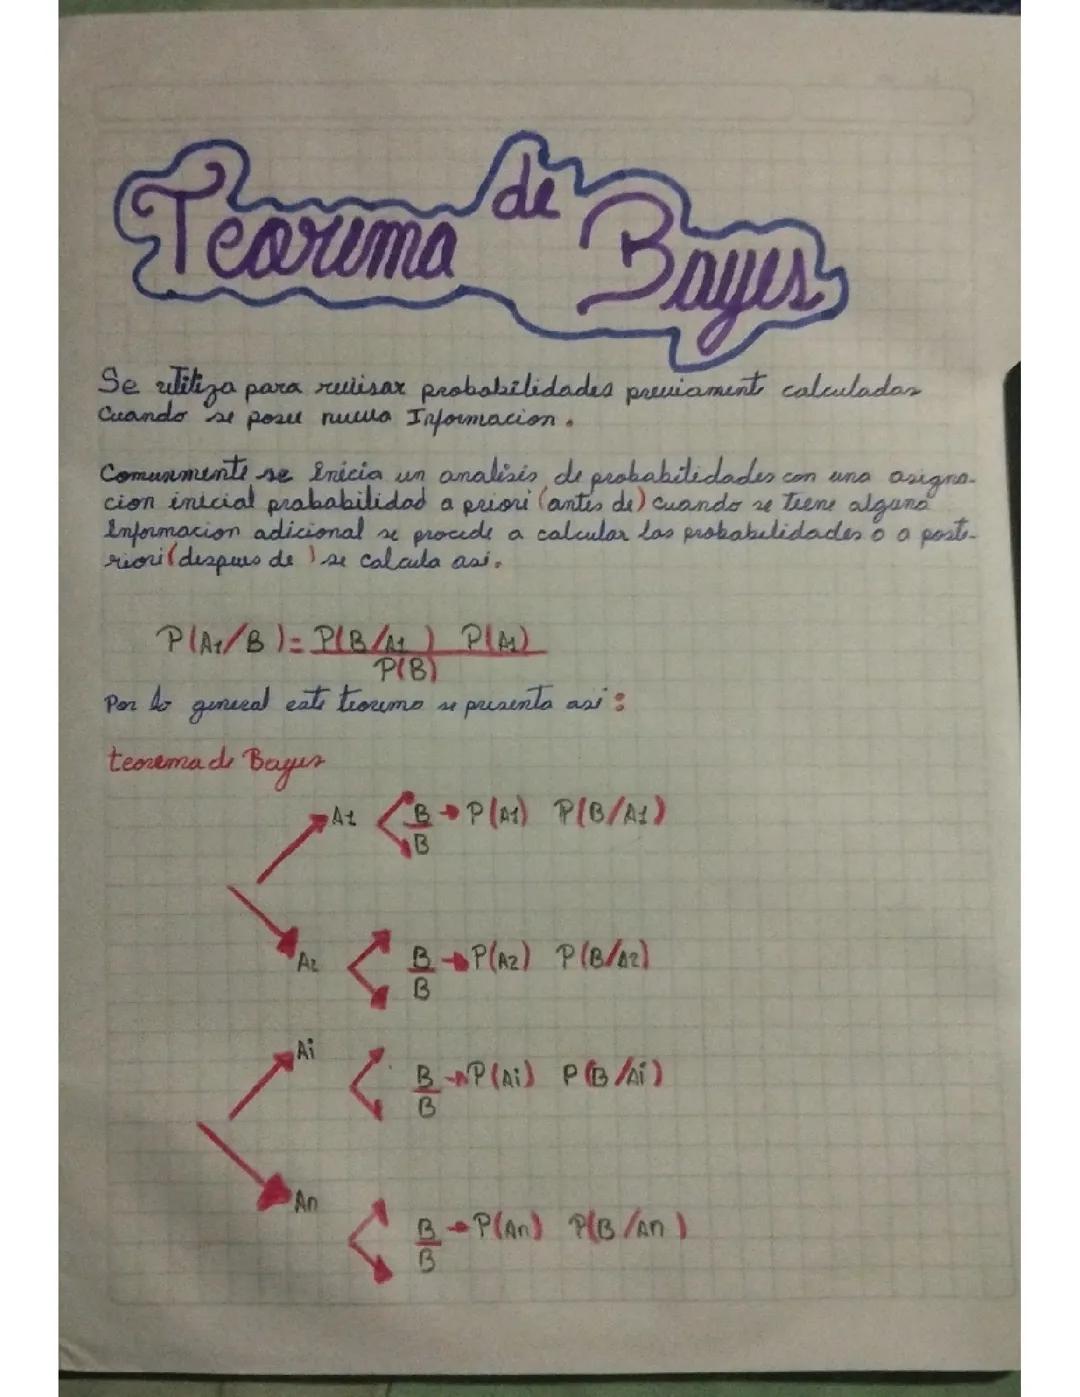 Teorema de Bayes
Se utiliza para revisar probabilidades previament calculadas
Cuando se posee nueva Informacion.
Comunmente se Inicia un analisis de probabilidades con una asigna-
cion inicial probabilidad a priori (antes de) cuando se tiene alguna
Informacion adicional se procede a calcular las probabilidades o a poste-
riori (despues de ) se calcula asi.
P(A1/B) = P(B/A1) P(A1)
P(B)
Por lo general este teorema se presenta asi:
teorema de Bayes
A1 B → P(A1) P(B/A1)
B
A2 B → P(A2) P(B/A2)
B
Ai B → P(Ai) P(B/Ai)
B
An B → P(An) P(B/An)
B